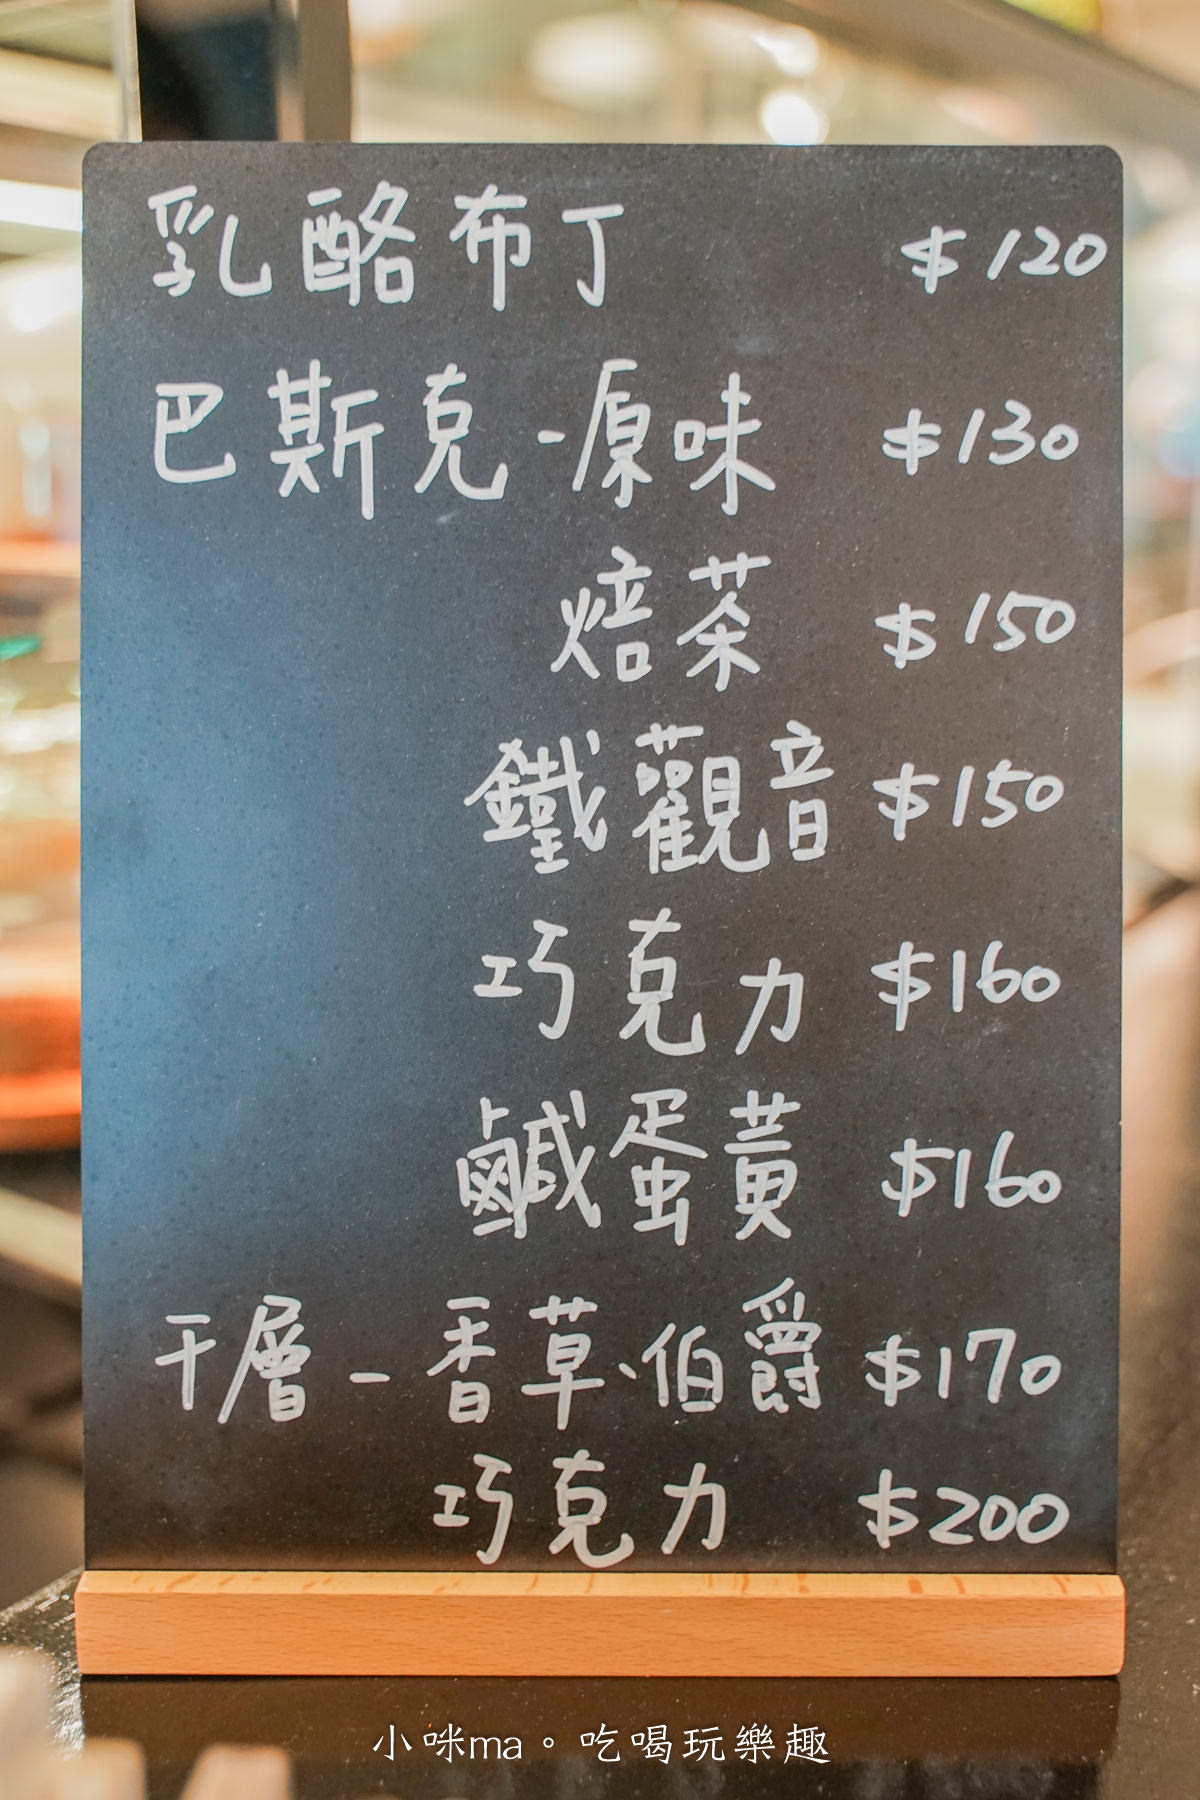 乳酪布丁 $120
巴斯克-原味 $130
焙茶 $150
鐵觀音 $150
巧克力 $160
鹹蛋黃 $160
千層-香草、伯爵 $170
巧克力 $200
小咪ma。吃喝玩樂趣